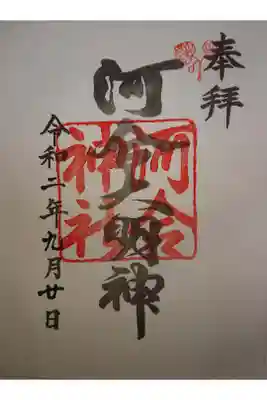 奉拝
河合大明神
河合
神社
令和二年九月廿日